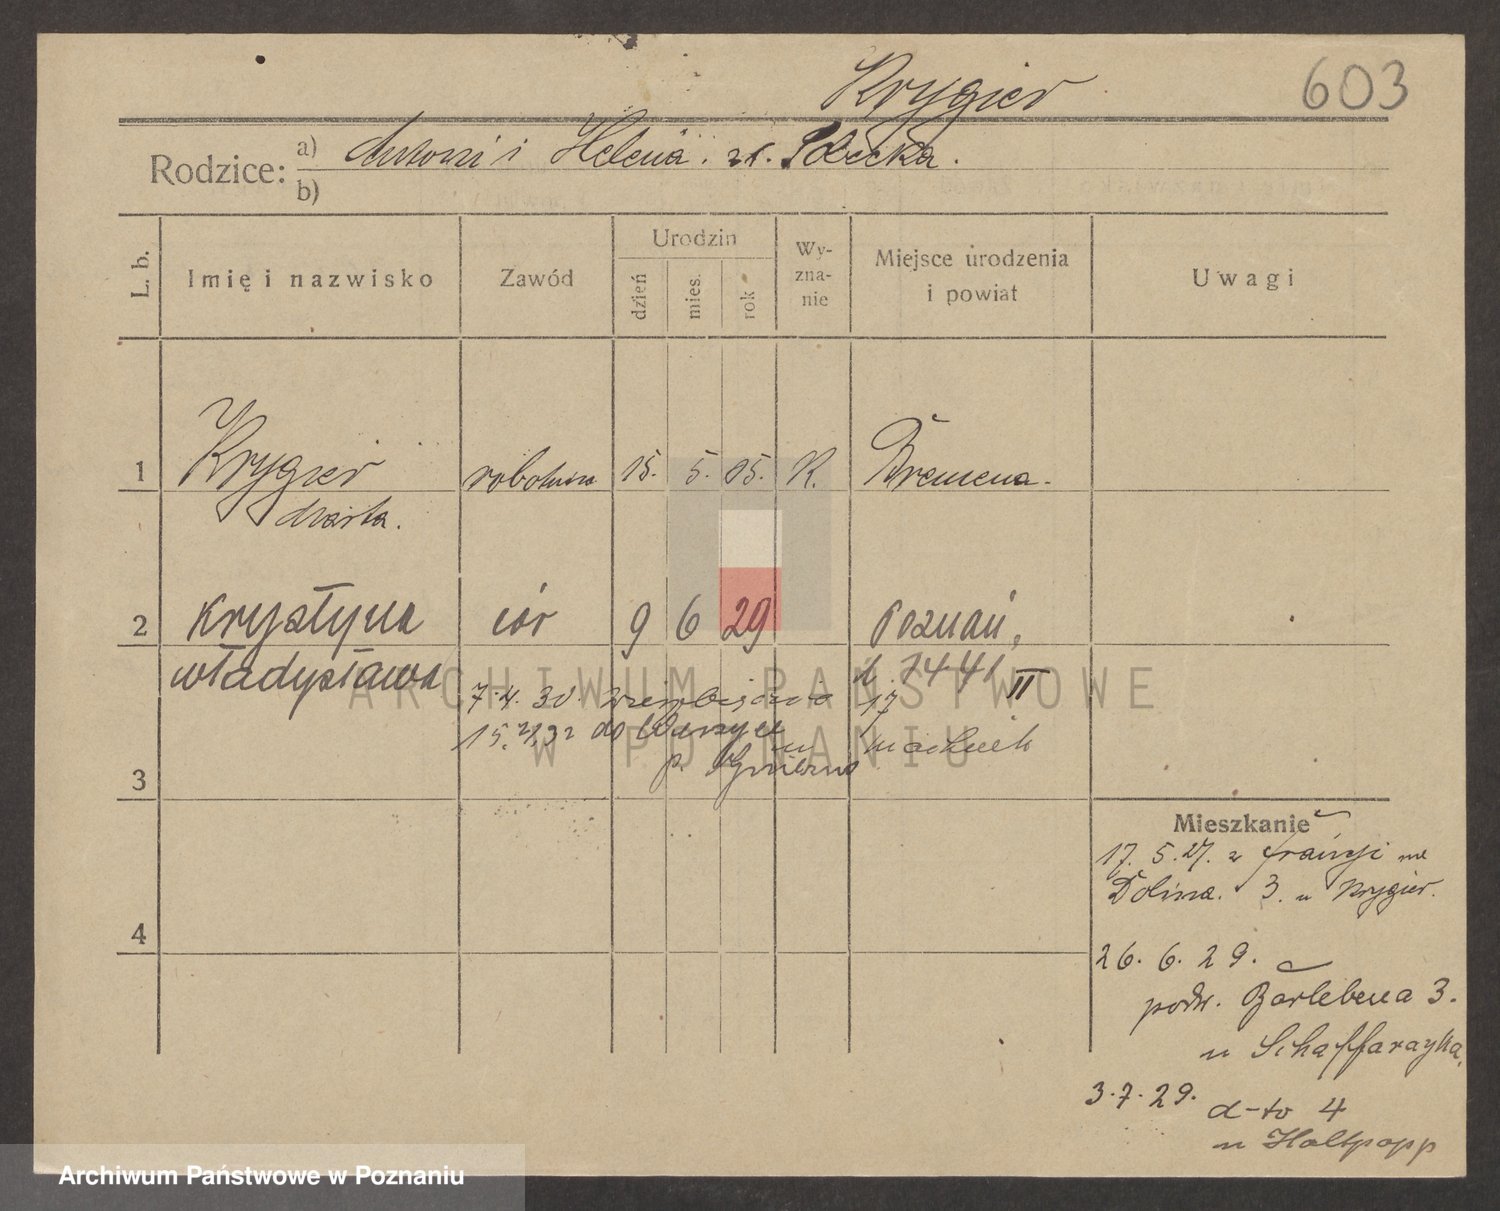 Krygier
603
Rodzice: a) Antoni i Helena. zd. Sobecka.
b)
L. b. Imię i nazwisko Zawód Urodzin dzień mies. rok Wy-zna-nie Miejsce urodzenia i powiat Uwagi
1 Krygier robotnica 15. 5. 05. K. Bremena.
Marta.
2 Krystyna cór 9 6 29 Poznań,
Władysława
7.4.30. 17
15. do
p. Gniezno
3
Mieszkanie
17. 5. 27. z Francji na
Dolina. 3. u Krygier.
4
26. 6. 29.
podw. Gartebena 3.
u Schaffarzyka,
3.7.29. d-to 4
u Holtpopp
ARCHIWUM PAŃSTWOWE
W POZNANIU
Archiwum Państwowe w Poznaniu